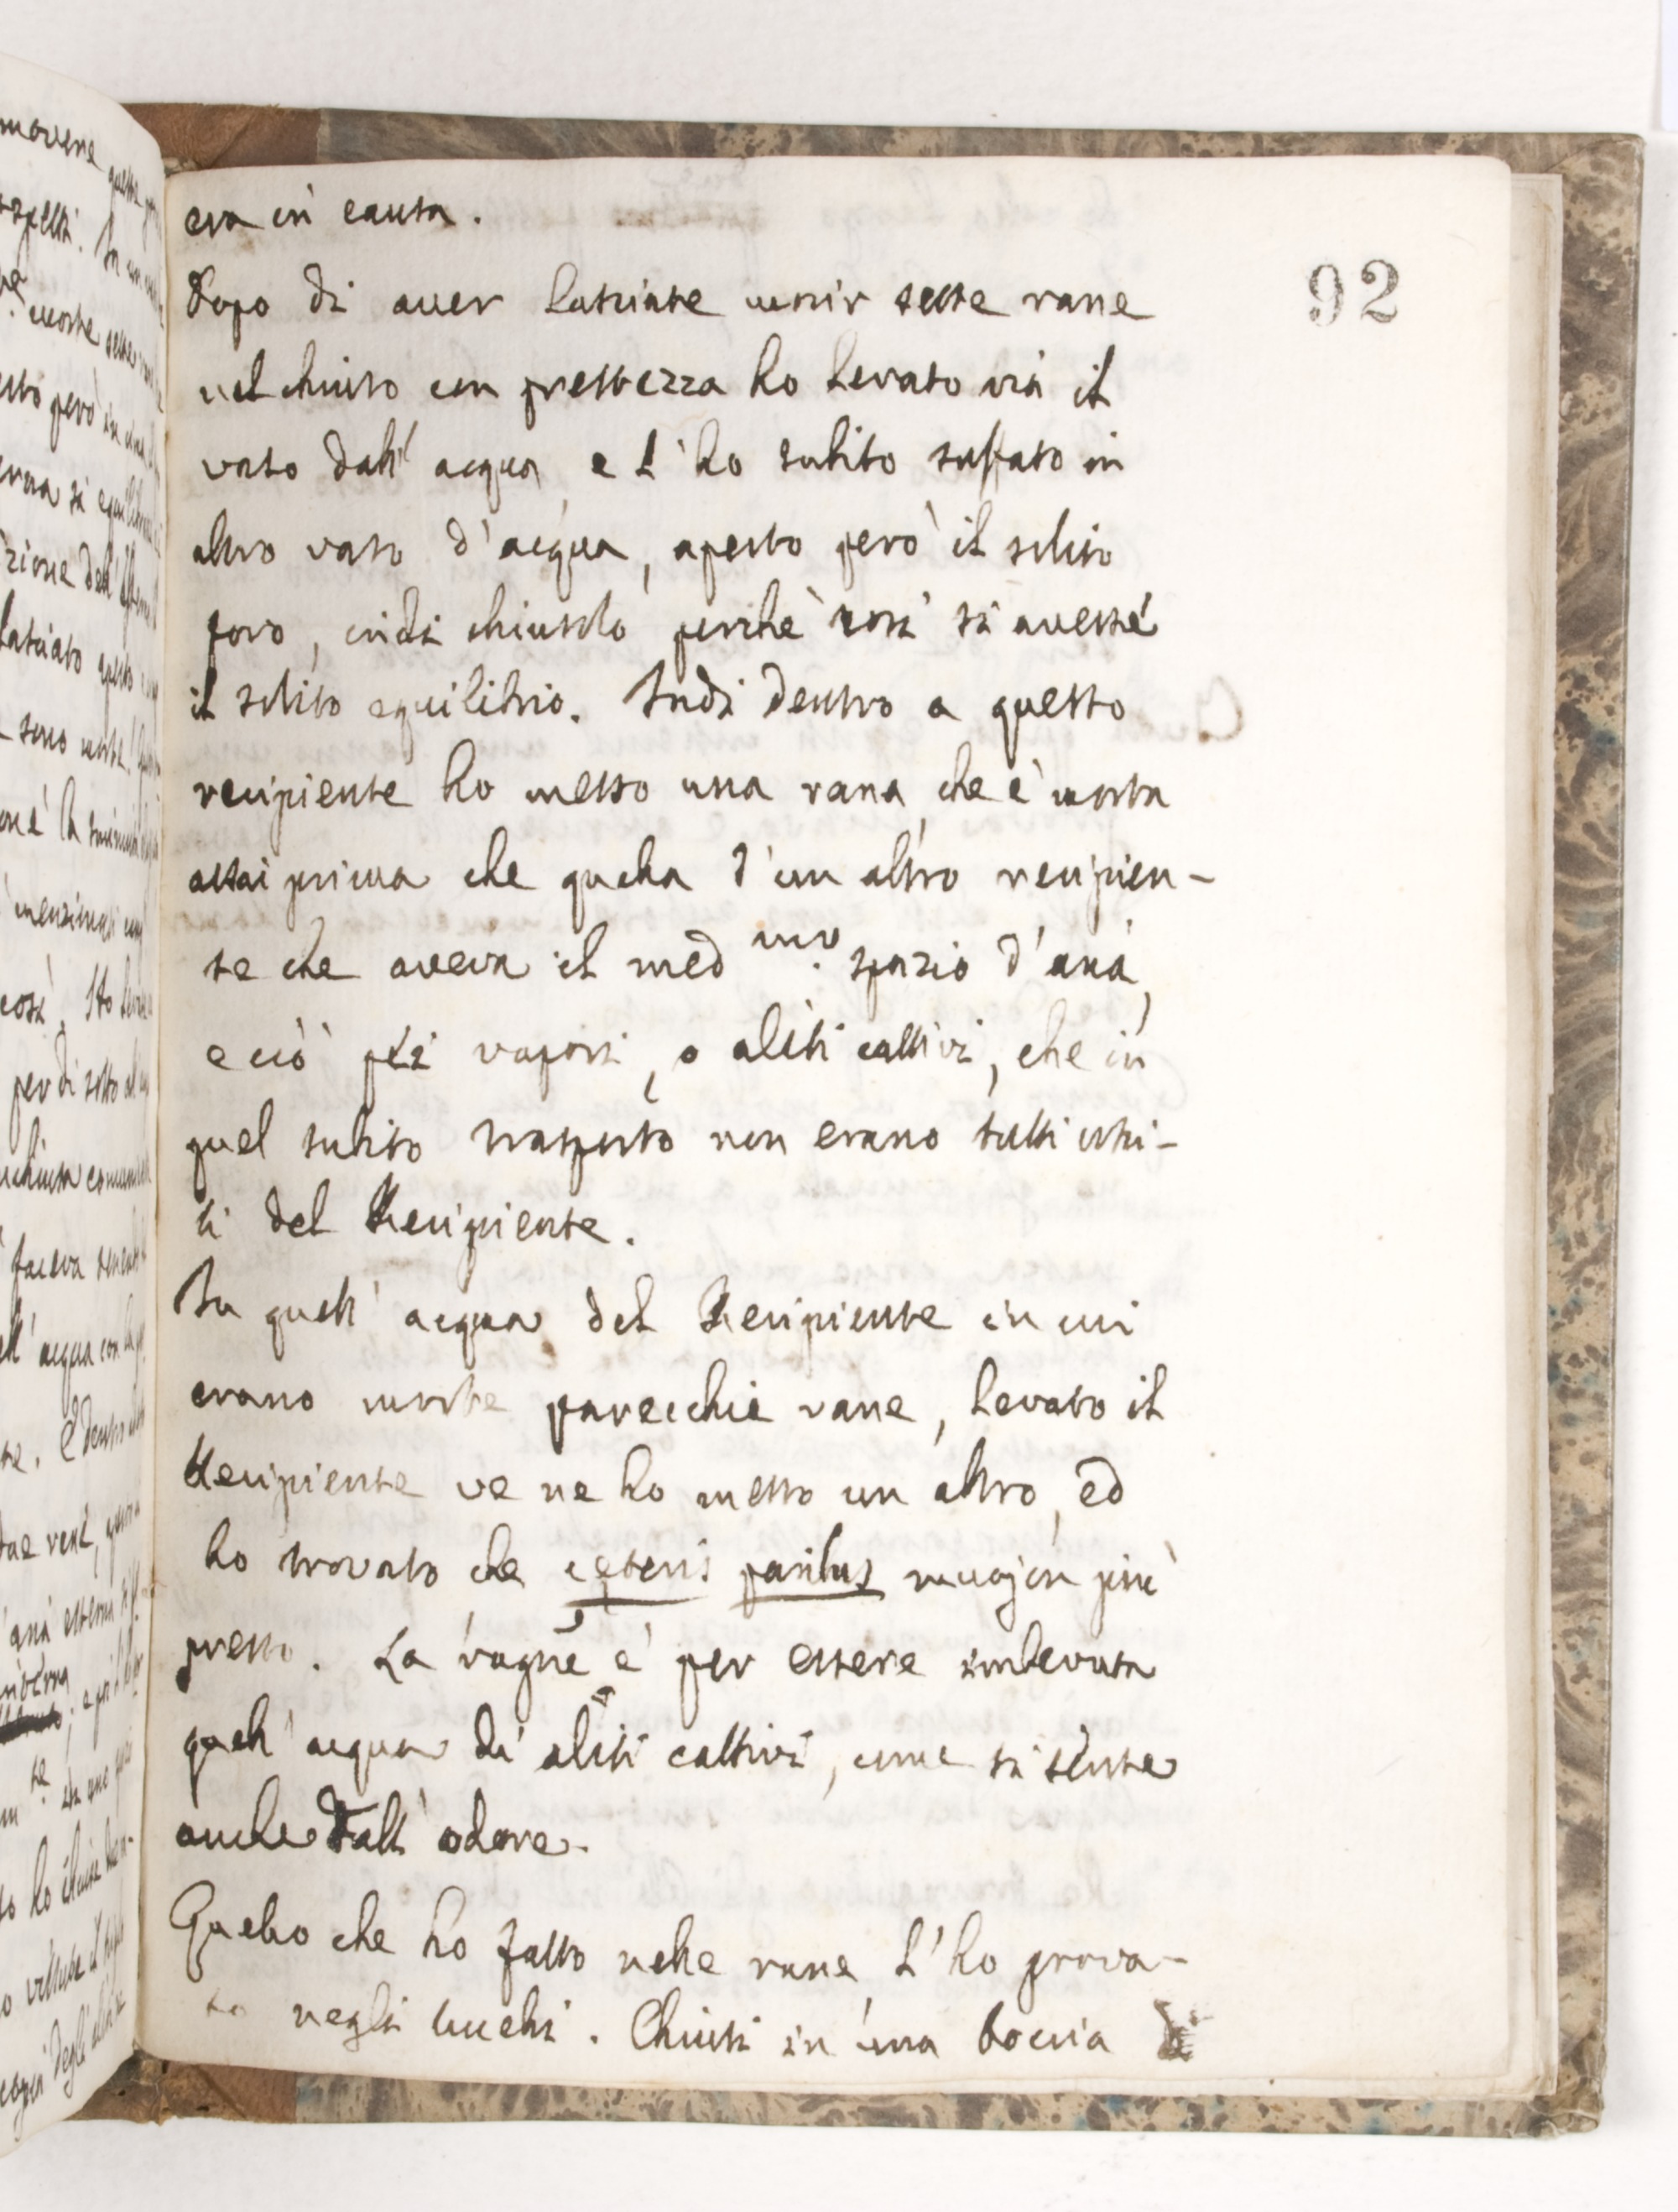 era in causa.
92
Dopo di aver lasciate morir sette rane
nel chiuso con prestezza ho levato via il
vaso dall' acqua e l'ho subito tuffato in
altro vaso d'acqua, aperto però il solito
foro, indi chiusolo perchè così si avesse
il solito equilibrio. Indi dentro a questo
recipiente ho messo una rana, che è morta
assai prima che quella d'un altro recipien-
te che aveva il med mo. spazio d'aria,
e ciò pei vapori, o aliti cattivi, che in
quel subito trasporto non erano tutti usci-
ti del Recipiente.
In quell' acqua del Recipiente in cui
erano morte parecchie rane, levato il
Recipiente ve ne ho messo un altro, ed
ho trovato che ceteris paribus muojon più
presto. La ragne è per essere imbevuta
quell' acqua di aliti cattivi, come si sente
anche dall' odore.
Quello che ho fatto nelle rane l'ho prova-
to negli bruchi. Chiusi in una boccia